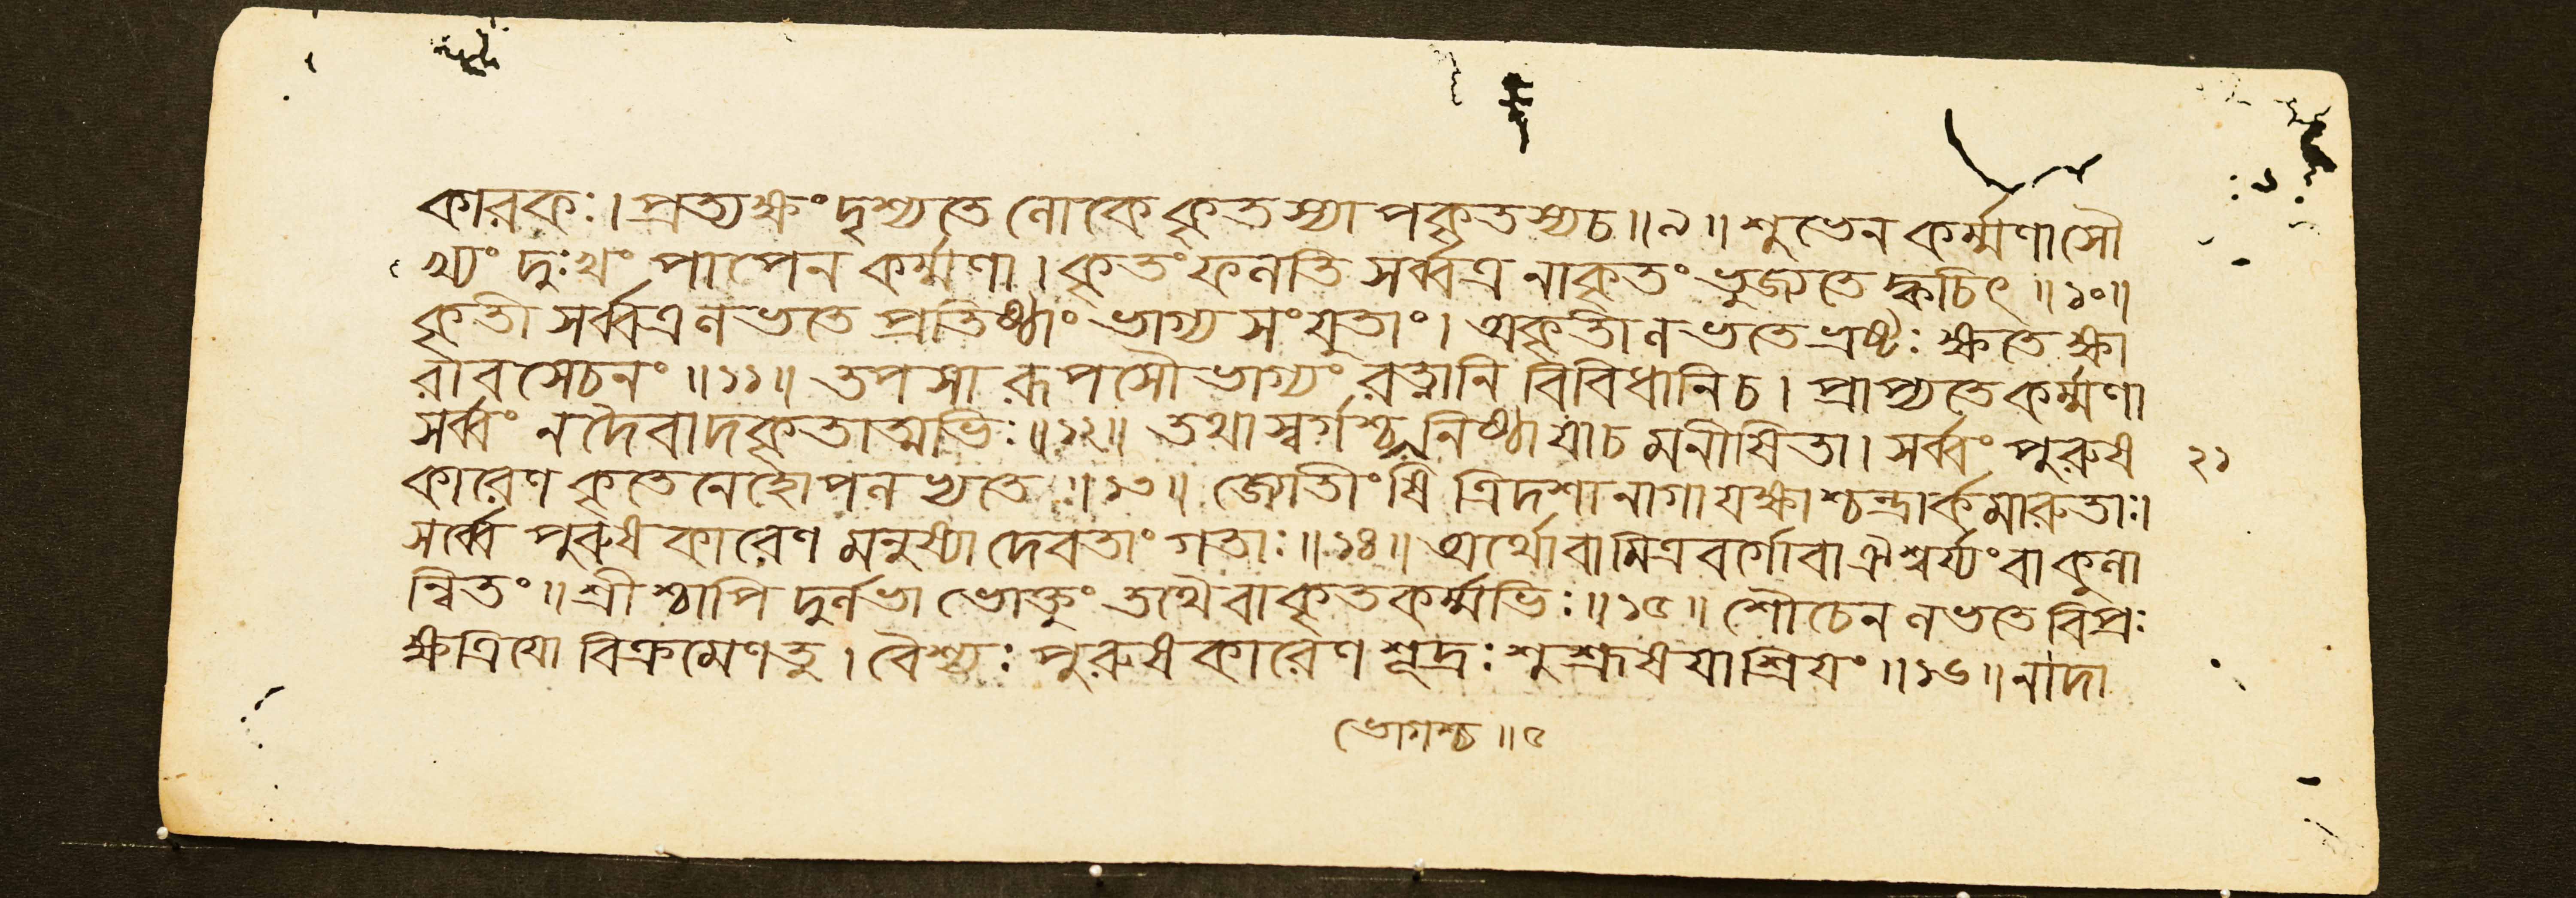 কারকঃ। প্রত্যক্ষং দৃশ্যতে লোকে কৃতস্যাপকৃতস্য চ॥৯॥ শুভেন কর্ম্মণা সৌ
খ্যং দুঃখং পাপেন কর্ম্মণা। কৃতং ফলতি সর্ব্বত্র নাকৃতং ভুজ্যতে ক্বচিৎ॥১০॥
কৃতী সর্ব্বত্র লভতে প্রতিষ্ঠাং ভাগ্য সংযুতাং। অকৃতী লভতে ভ্রষ্টঃ ক্ষতে ক্ষা
রাবসেচনং॥১১॥ তপসা রূপসৌভাগ্যং রত্নানি বিবিধানি চ। প্রাপ্যতে কর্ম্মণা
সর্ব্বং ন দৈবাদকৃতাত্মভিঃ॥১২॥ তথা স্বর্গশ্চ নিষ্ঠা যা চ মনীষিতা। সর্ব্বং পুরুষ
২১
কারেণ কৃতেনেহোপলভ্যতে॥১৩॥ জ্যোতীংষি ত্রিদশা নাগা যক্ষাশ্চন্দ্রার্কমারুতাঃ।
সর্ব্বে পুরুষকারেণ মনুষ্যা দেবতাং গতাঃ॥১৪॥ অর্থো বা মিত্রবর্গো বা ঐশ্বর্য্যং বা কুলা
ন্বিতং॥ শ্রীশ্চাপি দুর্লভা ভোক্তুং তথৈবাকৃতকর্ম্মভিঃ॥১৫॥ শৌচেন লভতে বিপ্রঃ
ক্ষত্রিযো বিক্রমেণ তু। বৈশ্যঃ পুরুষকারেণ শূদ্রঃ শুশ্রূষযা শ্রিযং॥১৬॥ নাদা
ভোগশ্চ॥৫